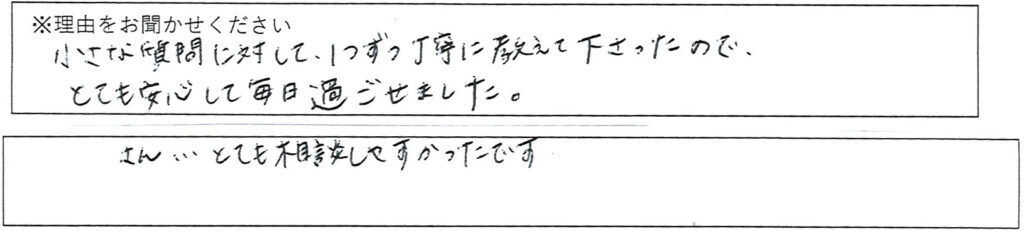 ※理由をお聞かせください
小さな質問に対して、1つずつ丁寧に教えて下さったので、
とても安心して毎日過ごせました。
さん… とても相談しやすかったです